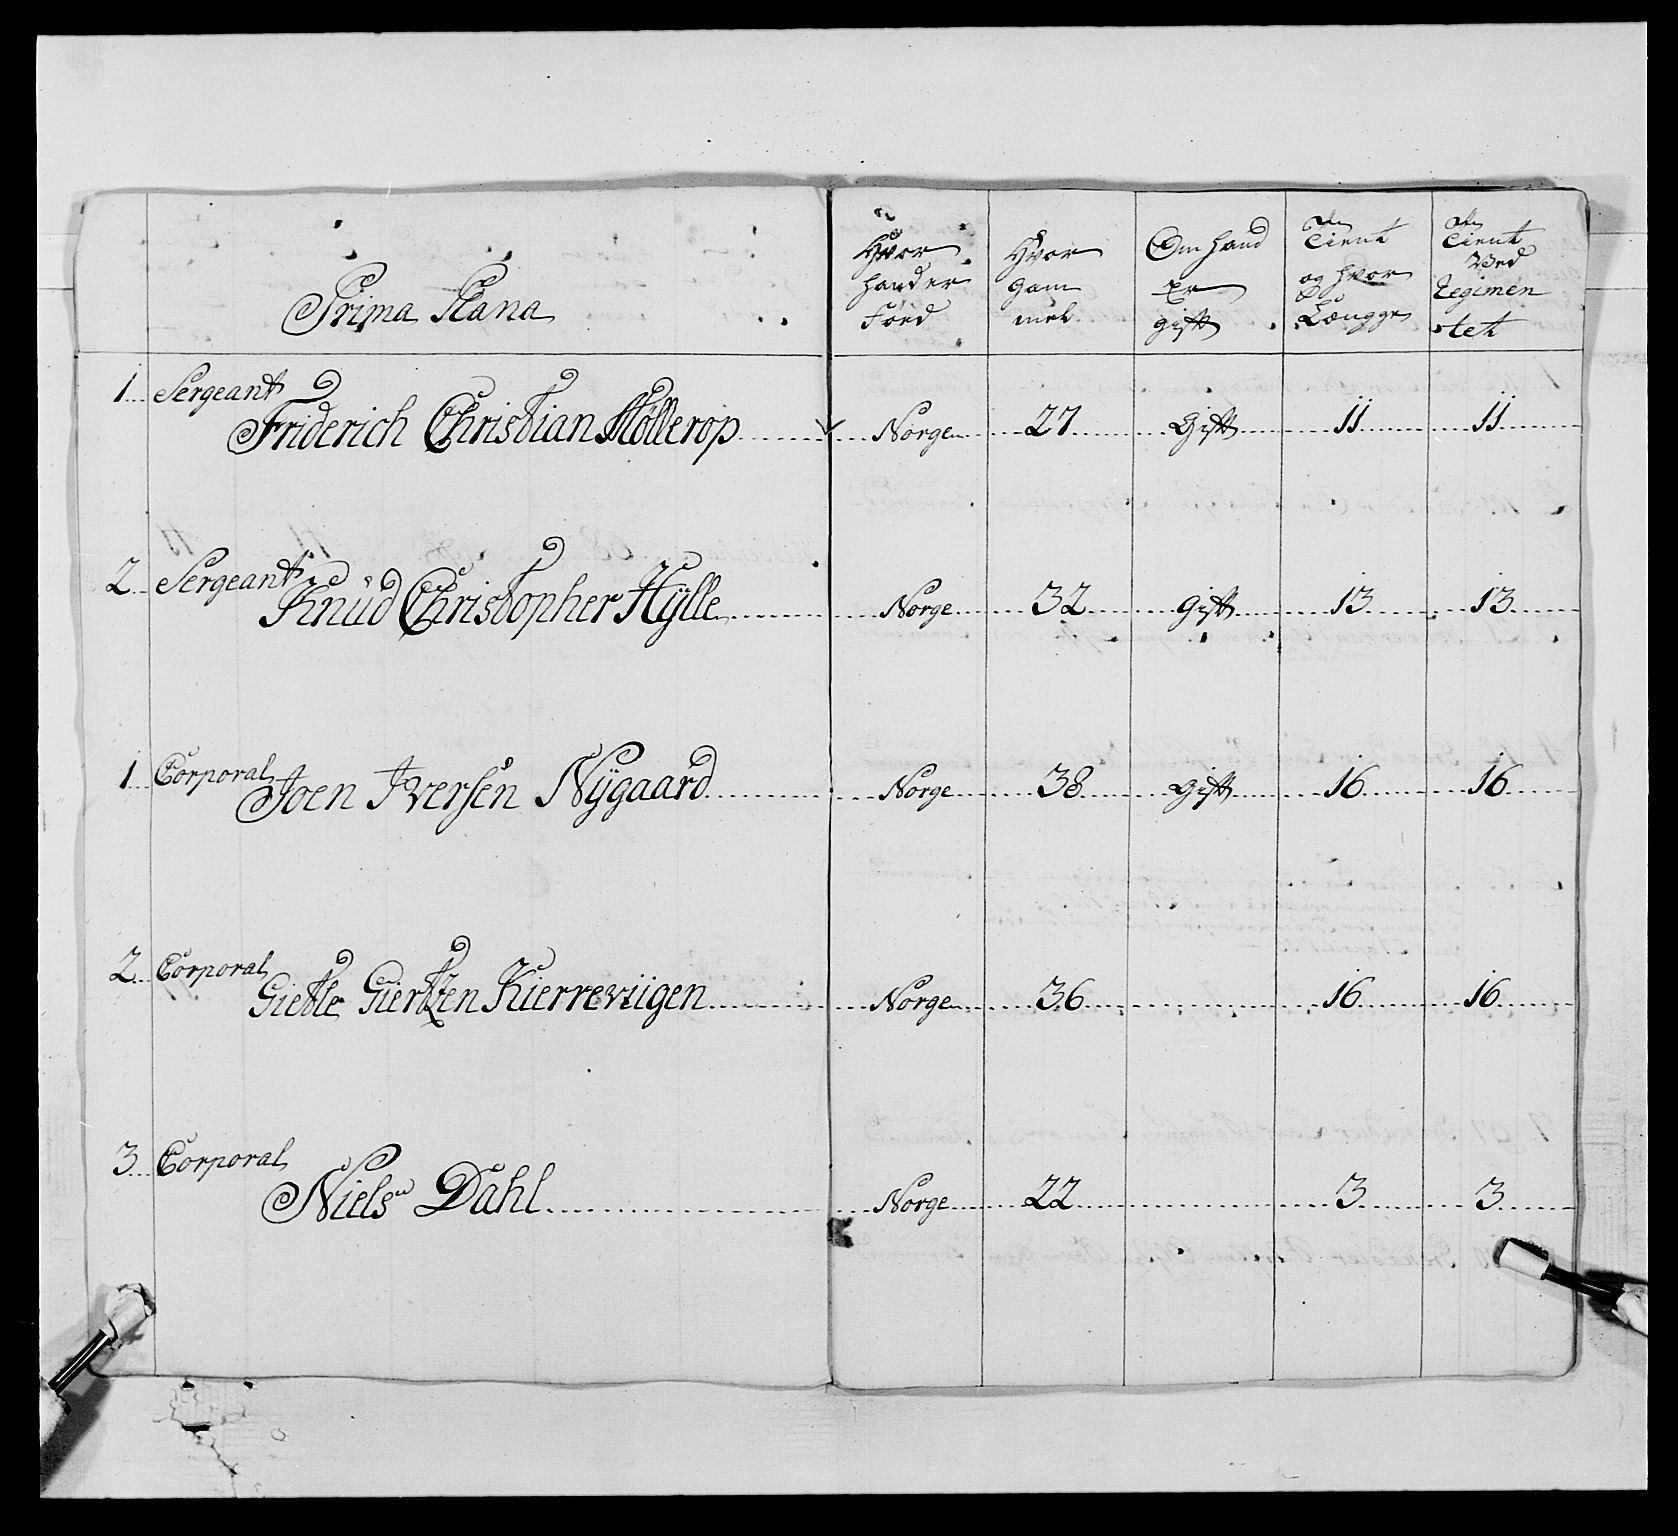 Prima Plana
Hvor
hander
Föed
Hvor
gam
mel
Om hand
Er
gift
Tient
og hvor
Længge
Tient
Ved
Regimen
tet
1 Sergeant
Friderich Christian Møllerop Norge 27 Gift 11 11
2 Sergeant
Knüd Christopher Hÿlle Norge 32 Gift 13 13
1 Corporal
Joen Iversen Nÿgaard Norge 38 Gift 16 16
2 Corporal
Gietle Giertzen Kierreviigen Norge 36 16 16
3 Corporal
Niels Dahl Norge 22 3 3